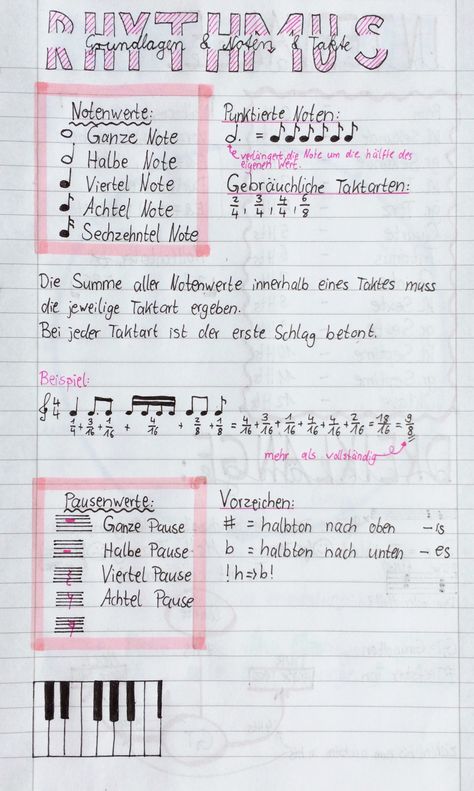 RHYTHMUS
Grundlagen & Noten & Takte
Notenwerte:
Ganze Note
Halbe Note
Viertel Note
Achtel Note
Sechzehntel Note
Punktierte Noten:
=
verlängert die Note um die hälfte des
eigenen Wert.
Gebräuchliche Taktarten:
2/4, 3/4, 4/4, 6/8
Die Summe aller Notenwerte innerhalb eines Taktes muss
die jeweilige Taktart ergeben.
Bei jeder Taktart ist der erste Schlag betont.
Beispiel:
4/4
1/4 + 3/16 + 1/16 + 4/16 + 2/8 + 1/8 = 4/16 + 3/16 + 1/16 + 4/16 + 4/16 + 2/16 = 18/16 = 9/8
mehr als vollständig
Pausenwerte:
Ganze Pause
Halbe Pause
Viertel Pause
Achtel Pause
Vorzeichen:
# = halbton nach oben - is
b = halbton nach unten - es
! h => b!